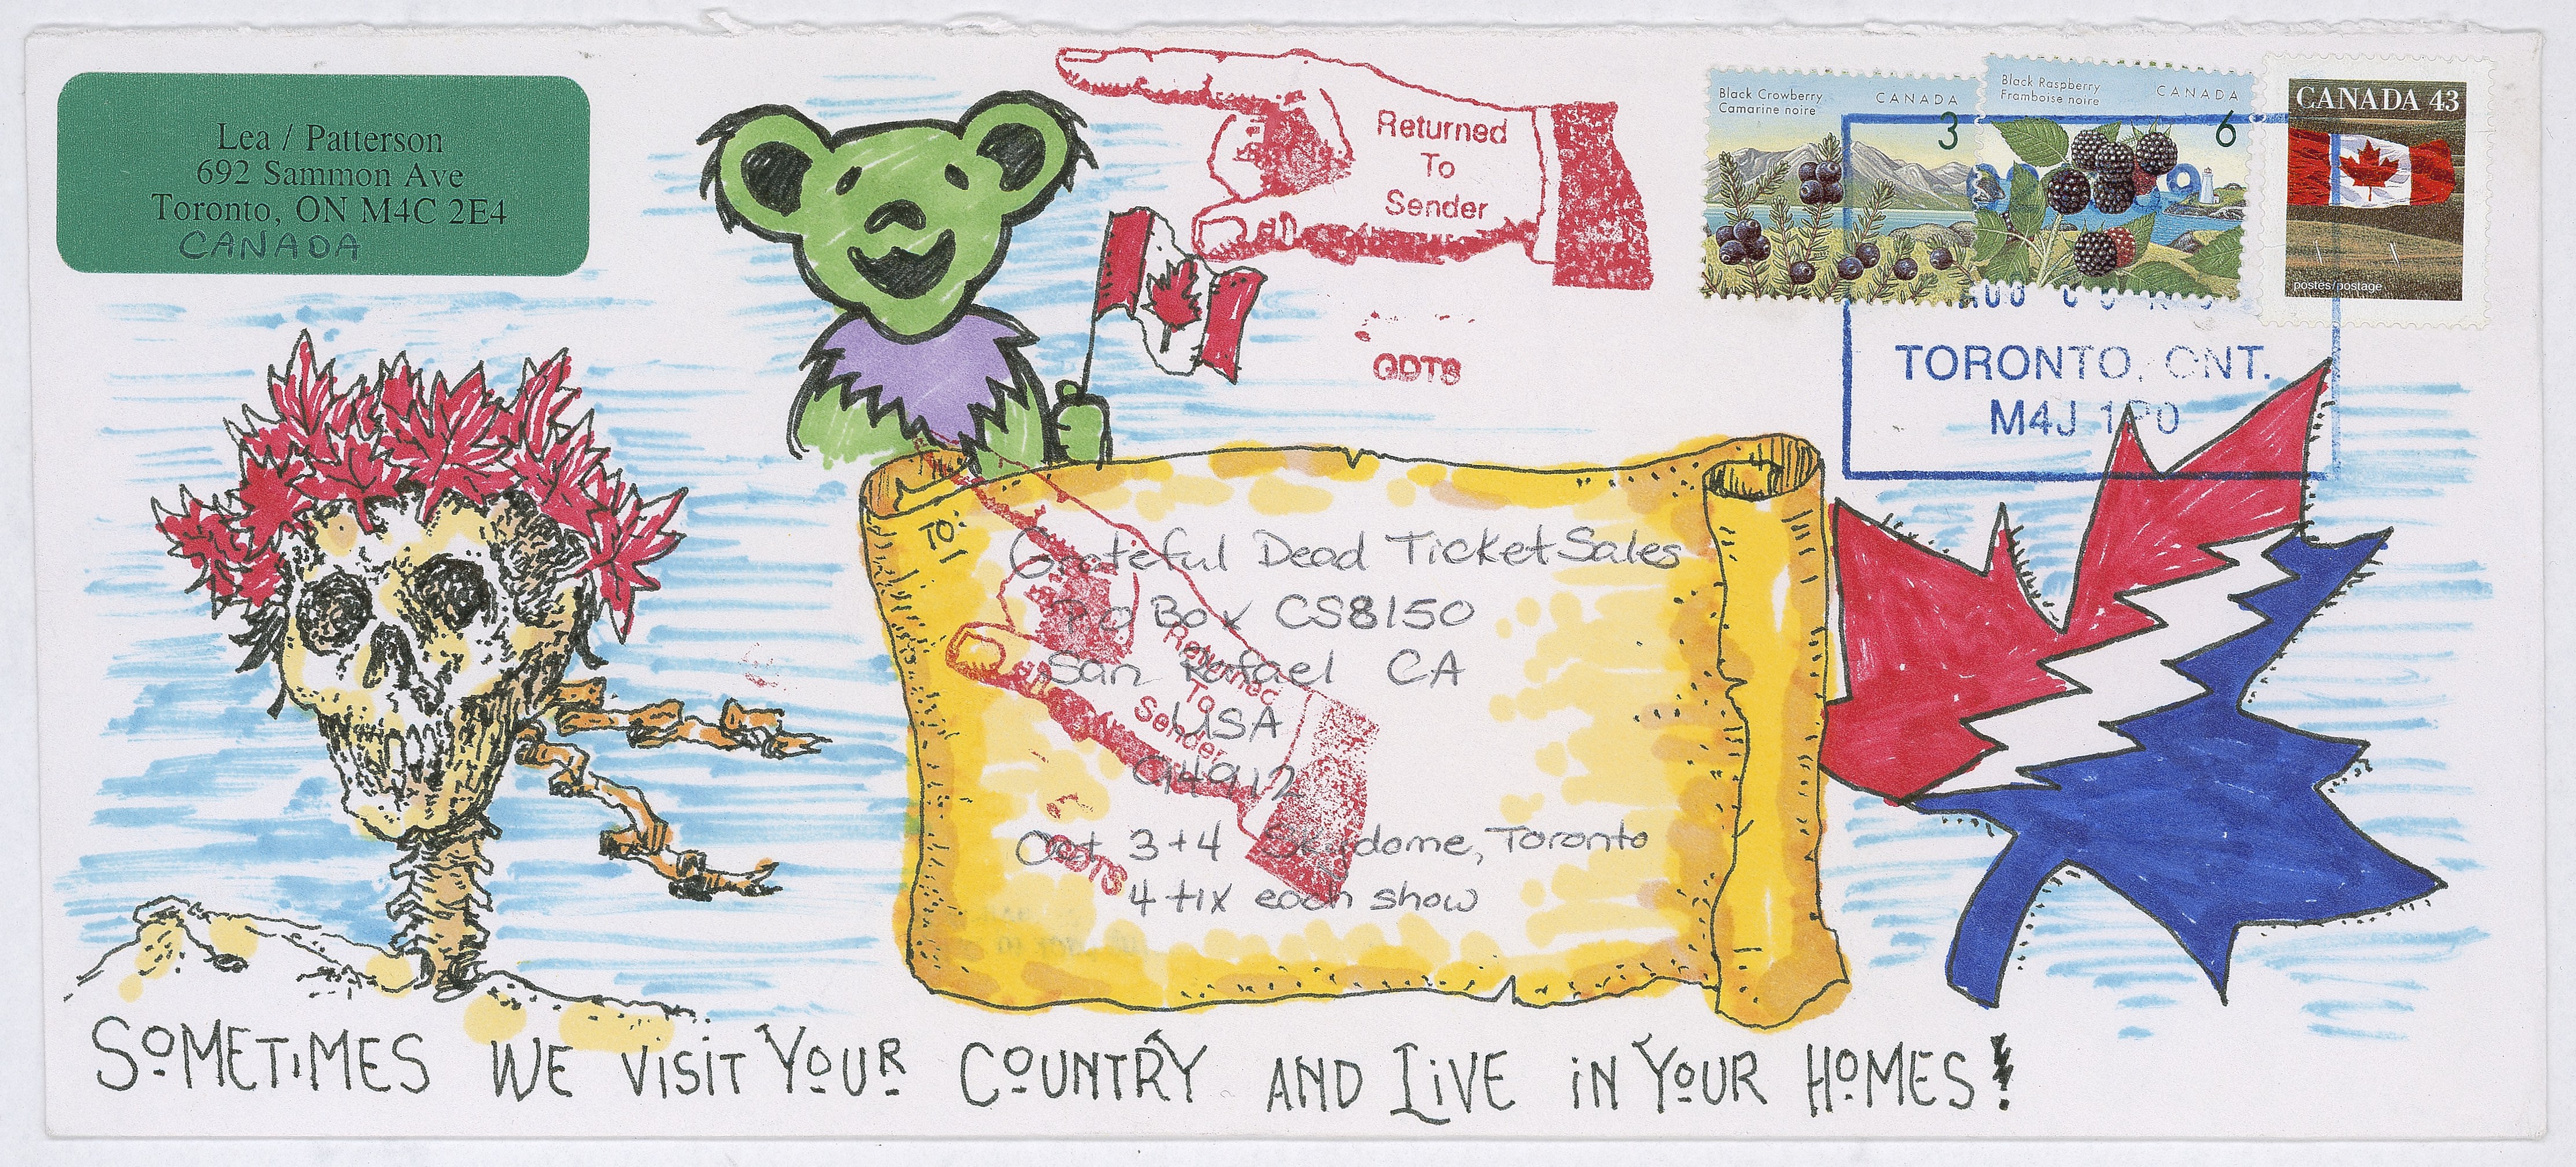 Lea / Patterson
692 Sammon Ave
Toronto, ON M4C 2E4
CANADA
Returned
To
Sender
GDTS
Black Crowberry
Camarine noire
CANADA
3
Black Raspberry
Framboise noire
CANADA
6
CANADA 43
postes/postage
AUG
TORONTO, ONT.
M4J 1P0
TO:
Grateful Dead Ticket Sales
PO Box CS8150
San Rafael CA
USA
94912
Oct 3+4 Skydome, Toronto
4 tix each show
Returned
To
Sender
GDTS
SOMETIMES WE VISIT YOUR COUNTRY AND LIVE IN YOUR HOMES!